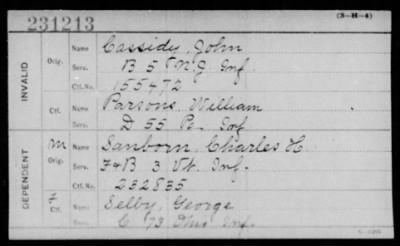 231213
(3-H-4)
INVALID
Orig.
Name Cassidy, John
Serv. B 5 N.J. Inf.
Ctf.No. 155472
Ctf.
Name Parsons, William
Serv. D 55 Pa. Inf
DEPENDENT
m Orig.
Name Sanborn, Charles H
Serv. F&B 3 Vt. Inf.
Ctf.No. 232835
Ctf.
Name Selby, George
Serv. C 73 Ohio Inf.